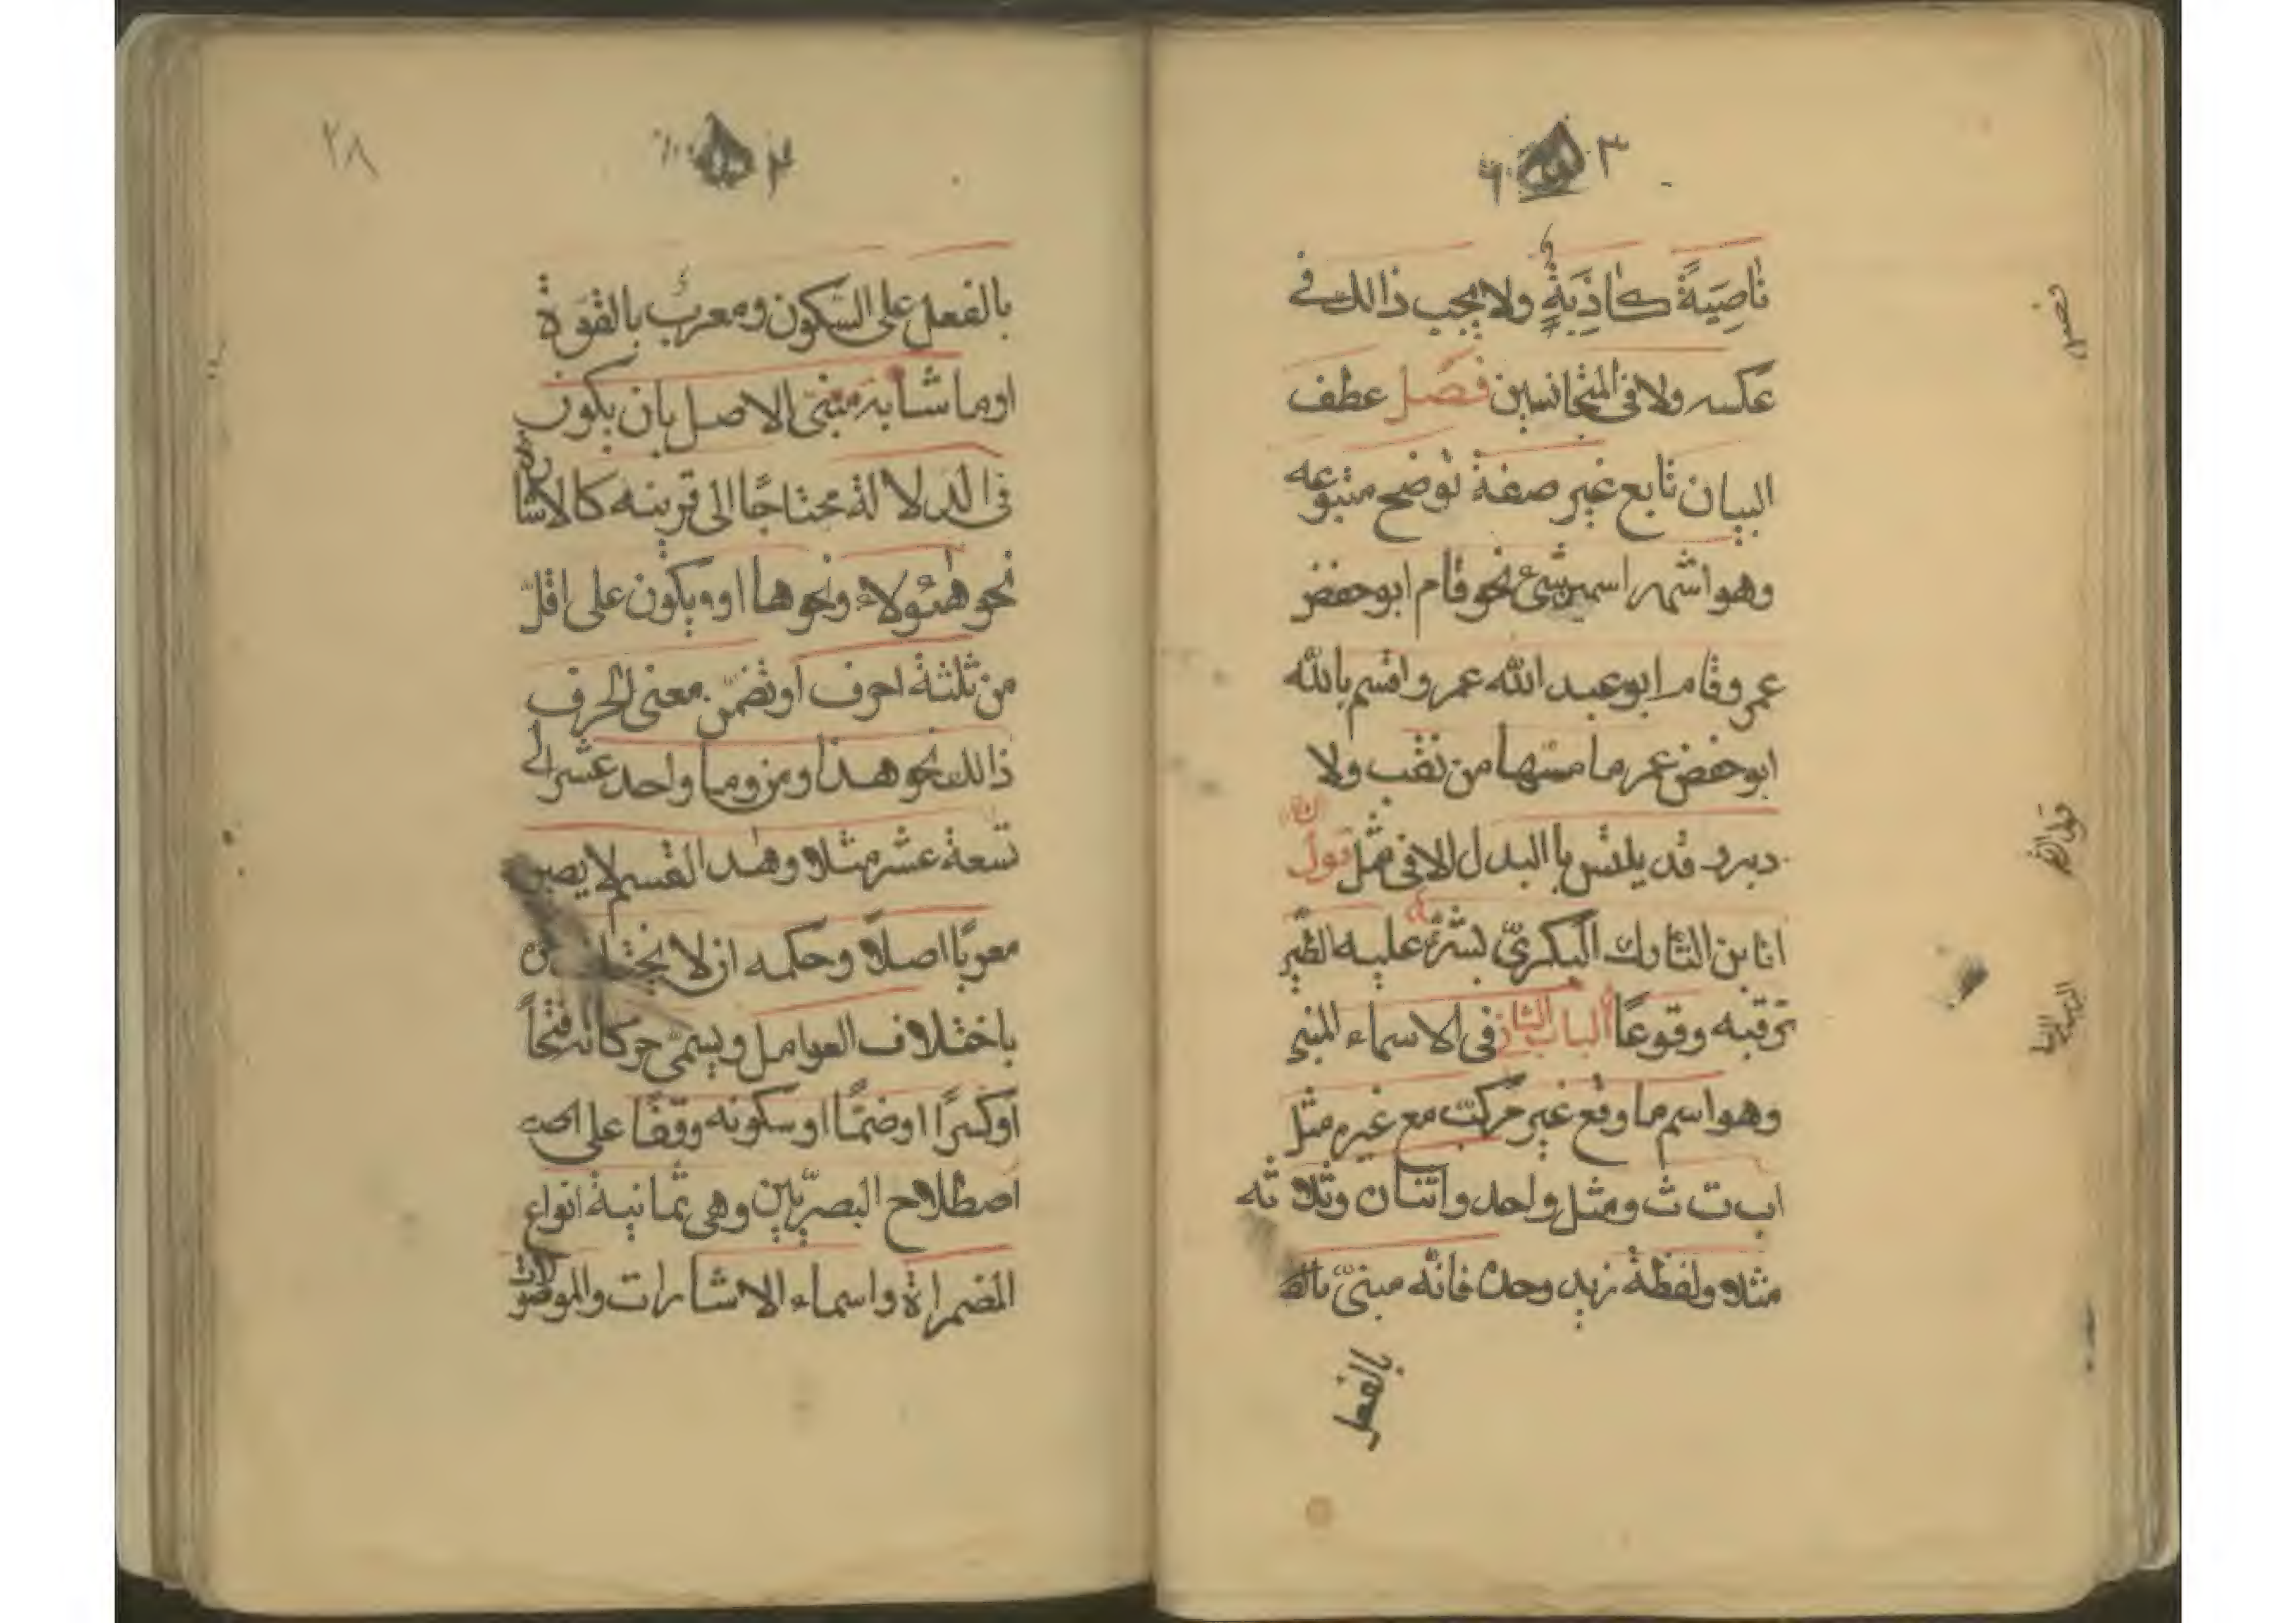 ٣
ناصِيَةً كاذِبَةٍ ولا يجب ذالك فى
عكسه ولا فى المتجانسين فصل عطف
البيان تابع غير صفة توضح متبوعه
وهو اشهر اسمين شىء نحو قام ابو حفض
عمر وقام ابو عبد الله عمر واقسم بالله
ابو حفض عمر ما مسّها من نقب ولا
دبر وقد يلتبس باالبدل الا فى مثل قول
انا بن التارك البكرىّ بشر عليه الطّير
ترقبه وقوعًا الباب الثانى فى الاسماء المبنى
وهو اسم ما وقع غير مركّب مع غيره مثل
اب ت ث ومثل واحد واثنان وثلاثه
مثلا ولفظة زيد وحده فانّه مبنىّ
بالفعل
فصل
٢٨
بالفعل على السّكون ومعربٌ بالقوّة
او ما شابه مبنى الاصل بان يكون
فى الدلالة محتاجًا الى قرينه كالاشارة
نحو هٰؤلاء ونحوها او ويكون على اقلّ
من ثلثة احرف او تضمّن معنى الحرف
ذالك نحو هذا ومن وما واحد عشر الى
تسعة عشر مثلا وهٰدا القسم لا يصير
معربًا اصلًا وحكمه ان لا يختلف
باختلاف العوامل ويسمّى حركاته فتحاً
او كسرًا او ضمّا او سكونه وقفًا على
اصطلاح البصرّيين وهى ثمانية انواع
المضمراة واسماء الاشارات والموصولات